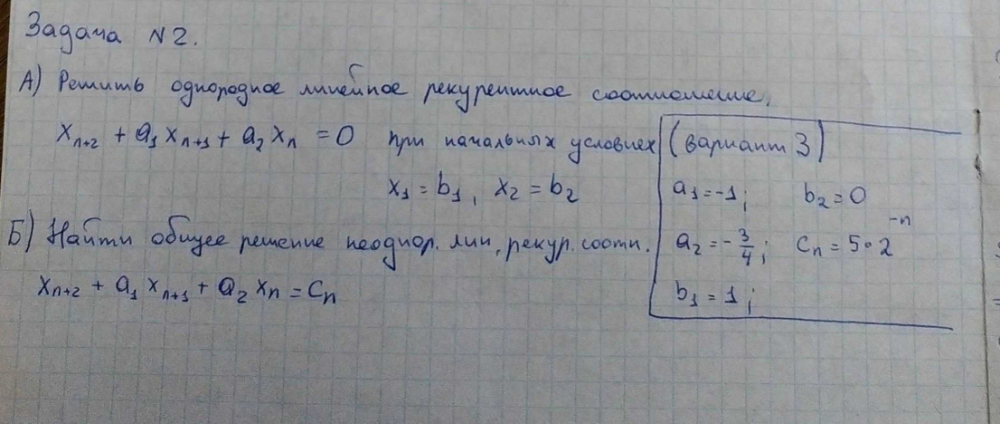 Задача N2.
А) Решить однородное линейное рекурентное соотношение,
x_{n+2} + a_1 x_{n+1} + a_2 x_n = 0 при начальных условиех
x_1 = b_1, x_2 = b_2
Б) Найти общее решение неоднор. лин, рекур. соотн.
x_{n+2} + a_1 x_{n+1} + a_2 x_n = c_n
(вариант 3)
a_1 = -1; b_2 = 0
a_2 = -3/4; c_n = 5·2^{-n}
b_1 = 1;